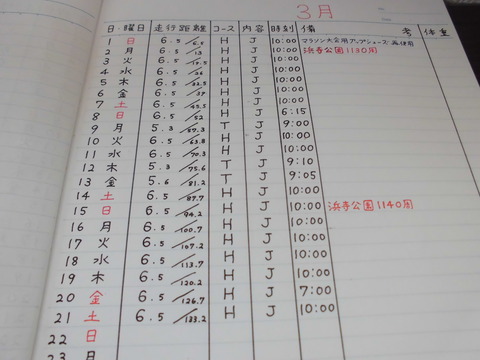 3月
日・曜日 走行距離 コース 内容 時刻 備 考 体重
1 日 6.5/6.5 H J 10:00 マラソン大会用アップシューズ・再使用
2 月 6.5/13 H J 10:00 浜寺公園1130周
3 火 6.5/19.5 H J 10:00
4 水 6.5/26 H J 10:00
5 木 6.5/32.5 H J 10:00
6 金 6.5/39 H J 10:00
7 土 6.5/45.5 H J 10:00
8 日 6.5/52 H J 6:15
9 月 5.3/57.3 T J 9:00
10 火 6.5/63.8 H J 10:00
11 水 6.5/70.3 H J 10:00
12 木 5.3/75.6 T J 9:10
13 金 5.6/81.2 T J 9:05
14 土 6.5/87.7 H J 10:00
15 日 6.5/94.2 H J 10:00 浜寺公園1140周
16 月 6.5/100.7 H J 10:00
17 火 6.5/107.2 H J 10:00
18 水 6.5/113.7 H J 10:00
19 木 6.5/120.2 H J 10:00
20 金 6.5/126.7 H J 7:00
21 土 6.5/133.2 H J 10:00
22 日
23 月